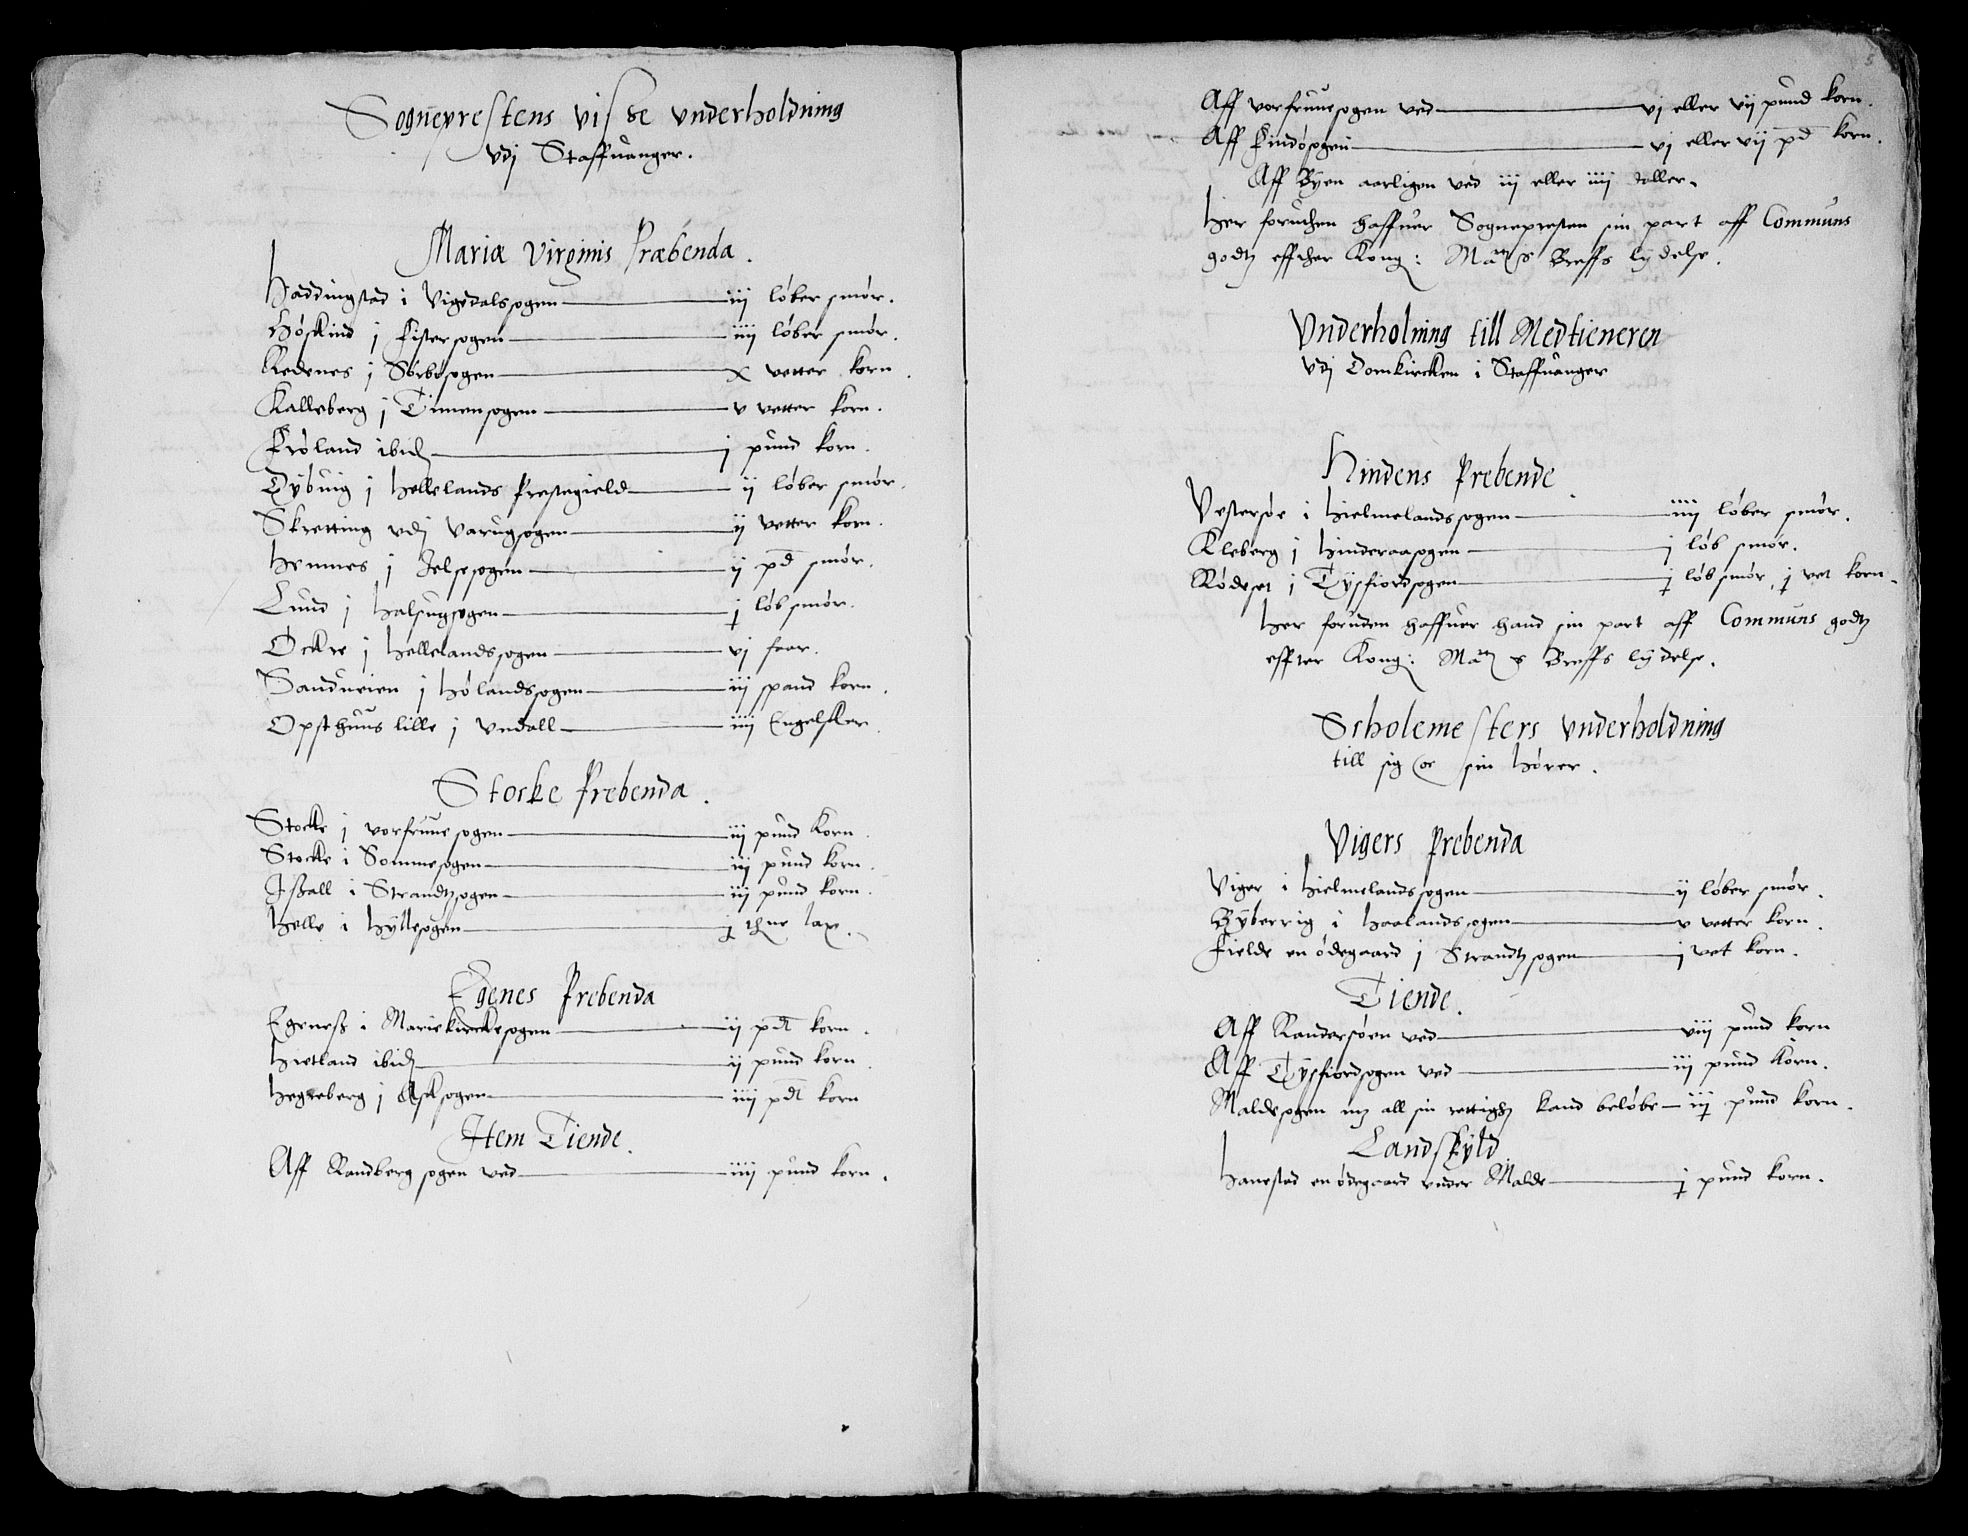 Sogneprestens visse vnderholdning
vdj Staffuanger.
Mariæ Virginis Præbenda.
Haddingstad i Vigedalssogen iij løber smør.
Høskind j Fistersogen iiij løber smør.
Redenes j Sørbøsogen x vetter korn.
Kalleberg j Timensogen v vetter korn.
Frøland ibid j pund korn.
Dybuig j Hellelands Prestegield ij løber smør.
Skretting vdj Varugsogen ij vetter korn.
Hemnes j Jelsesogen ij pd smør.
Lund j Halsugsogen j løb smør.
Ockre j Hellelandssogen vj faar.
Sandueien j Hølandssogen iij spand korn.
Opsthuus lille j Vndall iiij Engelsker.
Stocke Prebenda.
Stocke j vorfruesogen iij pund korn.
Stocke i Sommesogen iij pund korn.
Jßall i Strandtzsogen iij pund korn.
Helle i Hyllesogen j thne lax.
Egenes Prebenda
Egeneß i Mariekirckesogen ij pd korn.
Hietland ibid ij pund korn.
Hegreberg j Asksogen iiij pd korn
Item Tiende.
Aff Randberg sogen ved iiij pund korn.
5
Aff vorfruesogen ved vj eller vij pund korn.
Aff Findøsogen vj eller vij pd korn.
Aff Byen aarligen ved iij eller iiij daller.
Her foruthen haffuer Sognepresten sin part aff Communs
godtz effther Kong: Matz Breffs lydelse.
Vnderholning till Medtieneren
vdj Domkircken i Staffuanger
Hindens Prebende
Vestersøe i Hielmelandssogen iiij løber smør.
Kleberg j Hinderaasogen j løb smør.
Rødeset j Tysfiordsogen j løb smør, j vet korn.
Her foruden haffuer hand sin part aff Communs godtz
effter Kong: Matz Breffs lydelse.
Scholemesters vnderholdning
till sig oc sin Hører.
Vigers Prebenda
Viger i Hielmelandssogen ij løber smør.
Byberrig i Haalandssogen v vetter korn.
Fielde en ødegaard j Strandtzsogen j vet korn.
Tiende.
Aff Randersøen ved viij pund korn
Aff Tysfiordsogen ved iij pund korn.
Maldesogen mz all sin rettighz kand beløbe iij pund korn.
Landskyld
Hanestad en ødegaard vnder Malde j pund korn.